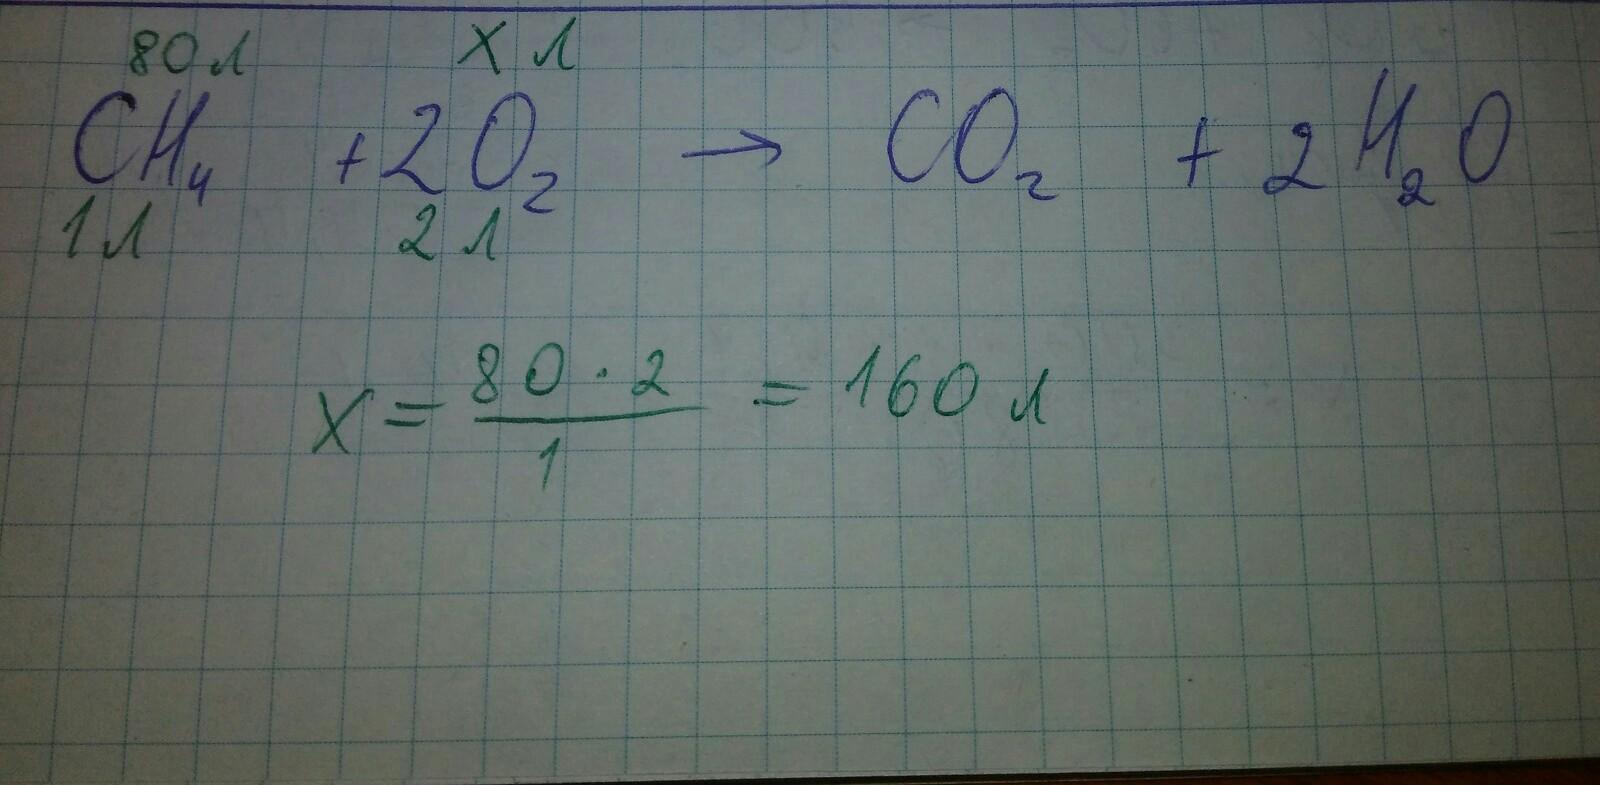 80 л x л
CH₄ + 2O₂ → CO₂ + 2H₂O
1 л 2 л
x = 80 · 2 / 1 = 160 л